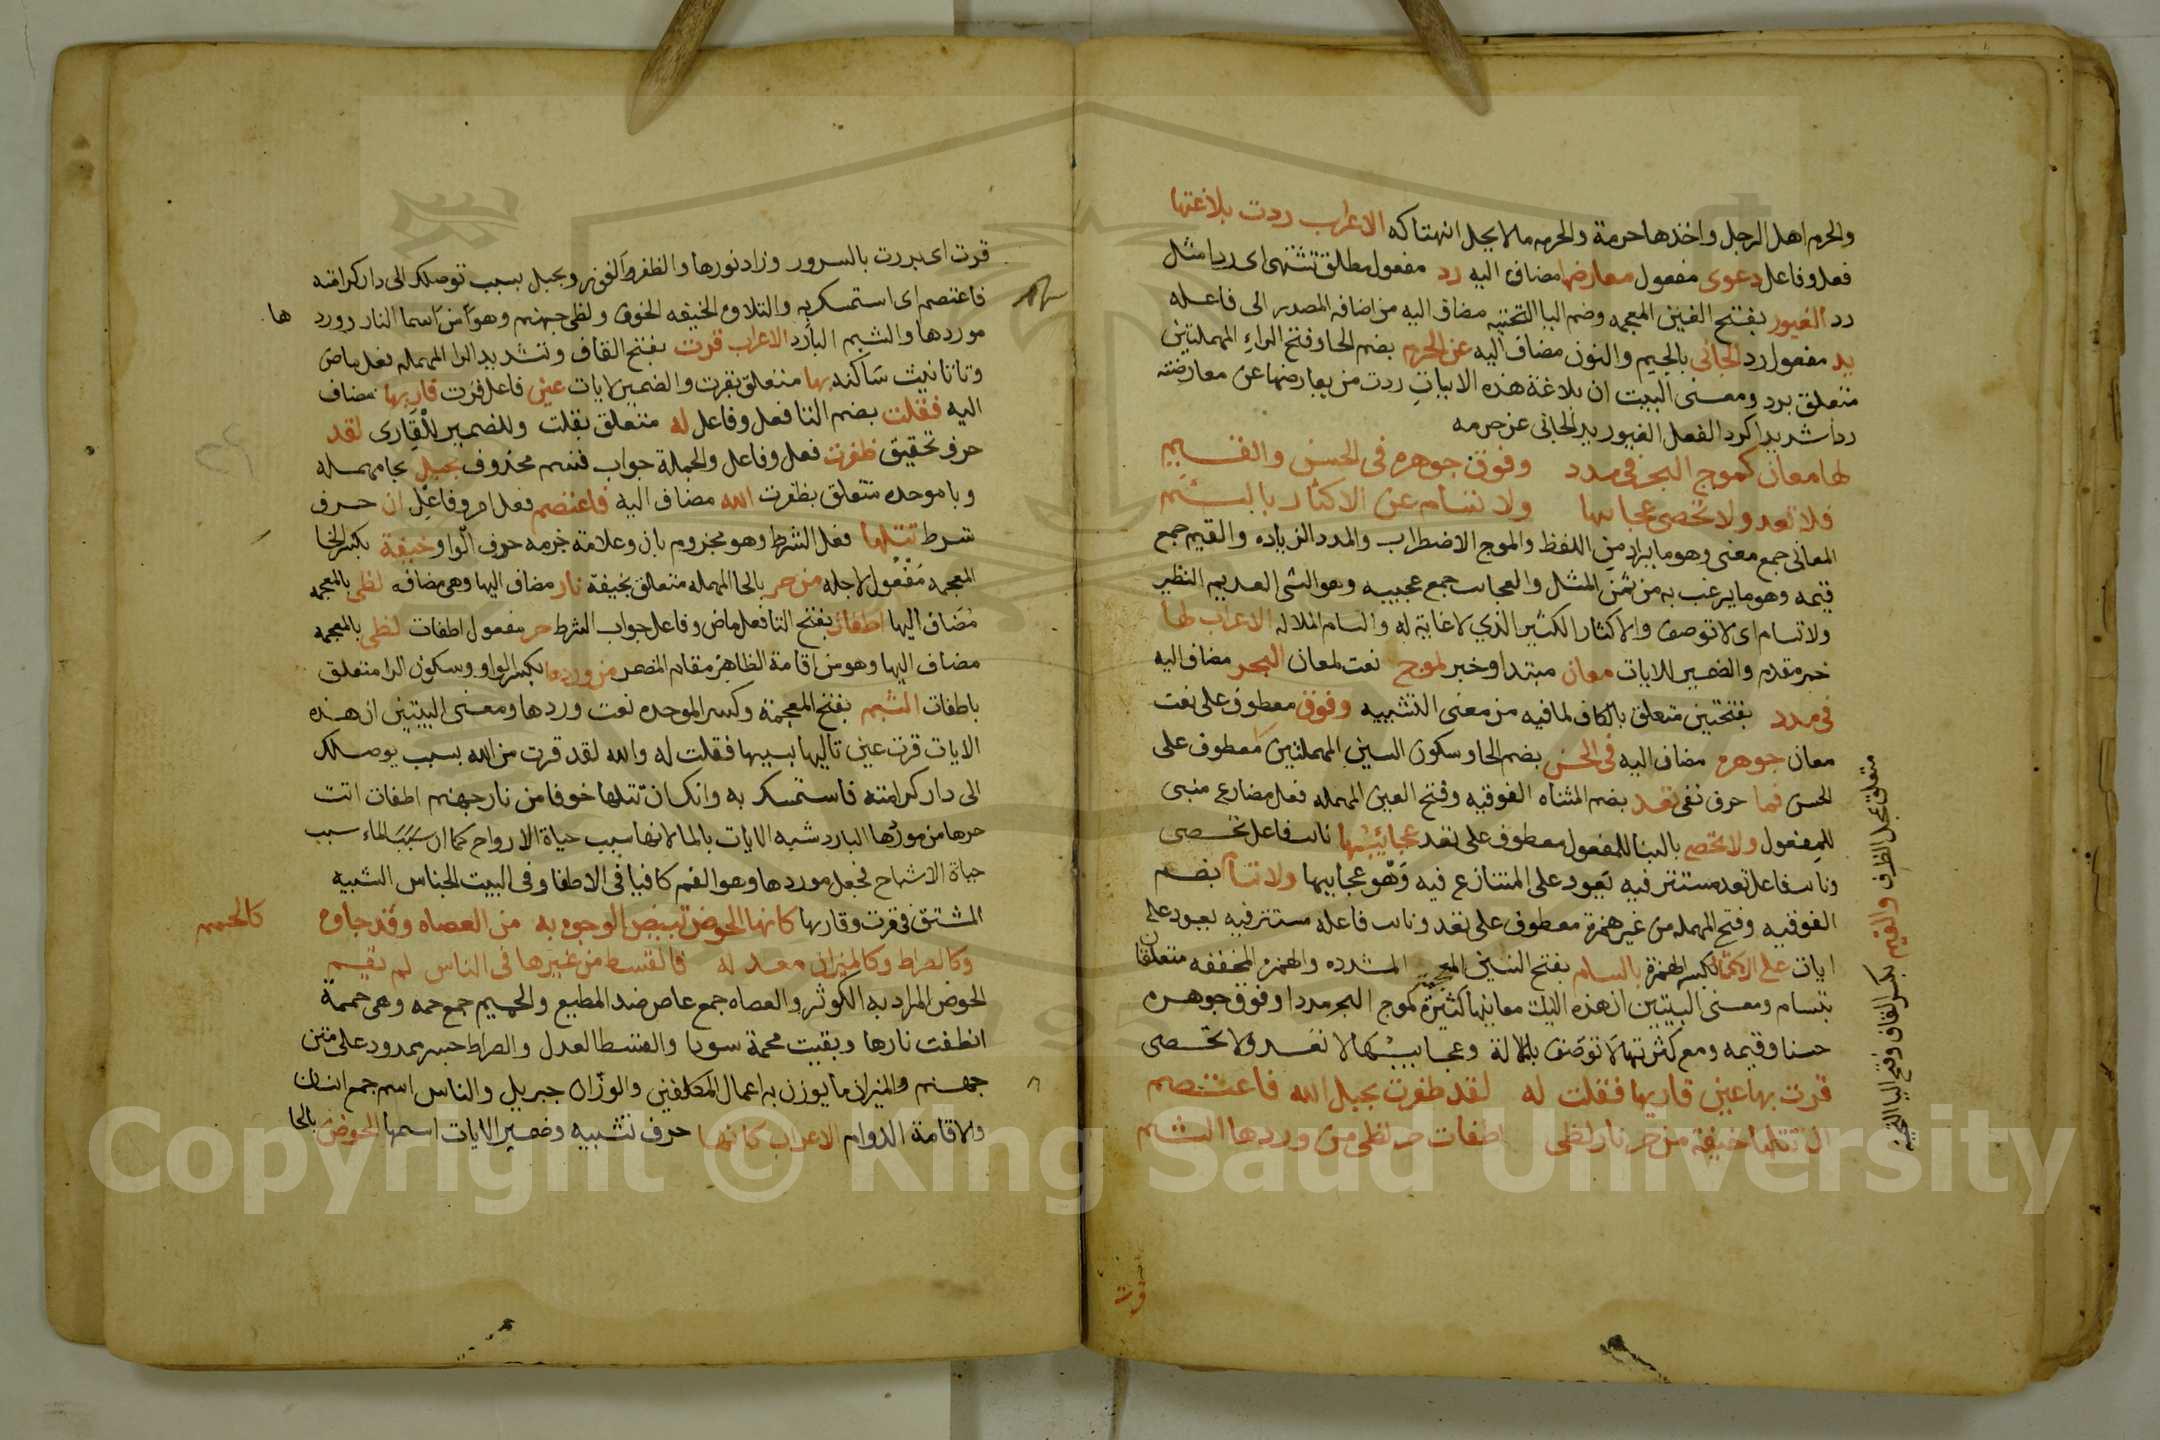 والحرم اهل الرجل واخذها حرمة والحرمه ما لا يحل انتهاكه الاعراب ردت بلاغتها
فعل وفاعل دعوى مفعول معارضها مضاف اليه رد مفعول مطلق تشبيهى اى ردا مثل
رد الغيور بفتح الغين المعجمه وضم اليا التحتيه مضاف اليه من اضافه المصدر الى فاعله
يد مفعول رد الجانى بالجيم والنون مضاف اليه عن الحرم بضم الحا وفتح الراء المهملتين
متعلق برد ومعنى البيت ان بلاغة هذه الابيات ردت من يعارضها عن معارضته
ردا شديدا كرد الفعل الغيور يد الجانى عن حرمه
لها معان كموج البحر فى مدد وفوق جوهره فى الحسن والقيم
فلا تعد ولا تحصى عجايبها ولا تسام عن الاكثار بالسئم
المعانى جمع معنى وهو ما يراد من اللفظ والموج الاضطراب والمدد الزياده والقيم جمع
قيمه وهو ما يرغب به من ثمن المثل والعجاب جمع عجيبه وهو الشى العديم النظير
ولا تسام اى لا توصف والاكثار الكثير الذي لا غاية له والسام الملاله الاعراب لها
خبر مقدم والضمير للايات معان مبتدا وخبر لموج نعت لمعان البحر مضاف اليه
فى مدد بفتحتين متعلق بالكاف لما فيه من معنى التشبيه وفوق معطوف على نعت
معان جوهره مضاف اليه فى الحسن بضم الحا وسكون السين المهملتين معطوف على
الحسن فما حرف نفى تعد بضم المثناه الفوقيه وفتح العين المهمله فعل مضارع مبنى
للمفعول ولا تحصى بالبنا للمفعول معطوف على تعد عجائبها نائب فاعل تحصى
ونائب فاعل تعد مستتر فيه يعود على المتنازع فيه وهو عجايبها ولا تسام بضم
الفوقيه وفتح المهمله من غير همزة معطوف على تعد ونائب فاعله مستتر فيه يعود على
ايات على الاكثار بكسر الهمزة بالسام بفتح السين المشدده والهمزه المخففه متعلقان
بتسام ومعنى البيتين ان هذه الايات معانيها كثيرة كموج البحر مددا وفوق جوهره
حسنا وقيمه ومع كثرتها لا توصف بالملالة وعجايبها لا تعد ولا تحصى
قرت بها عين قاريها فقلت له لقد ظفرت بحبل الله فاعتصم
ان تتلها خيفة من حر نار لظى اطفات حر لظى من وردها الشبم
متعلق بمحل الظرف والقيم بكسر القاف وفتح اليا التحتيه
قرت
قرت اى بررت بالسرور وزاد نورها والظفر الفوز وبحبل بسبب توصلك الى دار كرامته
فاعتصم اى استمسك به والتلاوه الخيفه الخوف ولظى جهنم وهو من اسما النار وورد
ها
موردها والشبم البارد الاعراب قرت بفتح القاف وتشديد الرا المهمله فعل ماض
وتا تانيث ساكنه بها متعلق بقرت والضمير لايات عين فاعل قرت قاريها مضاف
اليه فقلت بضم التا فعل وفاعل له متعلق بقلت وللضمير للقارى لقد
حرف تحقيق ظفرت فعل وفاعل والجملة جواب قسم محذوف بحبل بحا مهمله
وبا موحده متعلق بظفرت الله مضاف اليه فاعتصم فعل امر وفاعل ان حرف
شرط تتلها فعل الشرط وهو مجزوم بان وعلامة جزمه حرف الواو خيفة بكسر الخا
المعجمه مفعول لاجله من حر بالحا المهمله متعلق بخيفة نار مضاف اليها وهى مضافه لظى بالمعجمه
مضاف اليها اطفات بفتح التا فعل ماض وفاعل جواب الشرط حر مفعول اطفات لظى بالمعجمه
مضاف اليها وهو من اقامة الظاهر مقام المضمر من وردها بكسر الواو وسكون الرا متعلق
باطفات الشبم بفتح المعجمة وكسر الموحده نعت وردها ومعنى البيتين ان هذه
الايات قرت عين تاليها بسببها فقلت له والله لقد قرت من الله بسبب يوصلك
الى دار كرامته فاستمسك به وان كان تتلها خوفا من نار جهنم اطفات انت
حرها من موردها البارد شبه الايات بالما لانها سبب حياة الارواح كما ان سبب الماء سبب
حياة الاشباح فجعل موردها وهو الفم كافيا فى الاطفا وفى البيت الجناس الشبيه
المشتق فى قرت وقاريها كانها الحوض تبيض الوجوه به من العصاه وقد جاوه
كالحمم
وكالصراط وكالميزان معدله فالقسط من غيرها فى الناس لم يقيم
الحوض المراد به الكوثر والعصاه جمع عاص ضد المطيع والحميم جمع حمه وهى حممة
انطفت نارها وبقيت محمة سودا والقسط العدل والصراط جسر ممدود على متن
جهنم والميزان ما يوزن به اعمال المكلفين والوزان جبريل والناس اسم جمع انسان
والاقامة الدوام الاعراب كانها حرف تشبيه وضمير الايات اسمها الحوض بالحا
Copyright © King Saud University